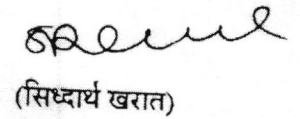 (सिध्दार्थ खरात)